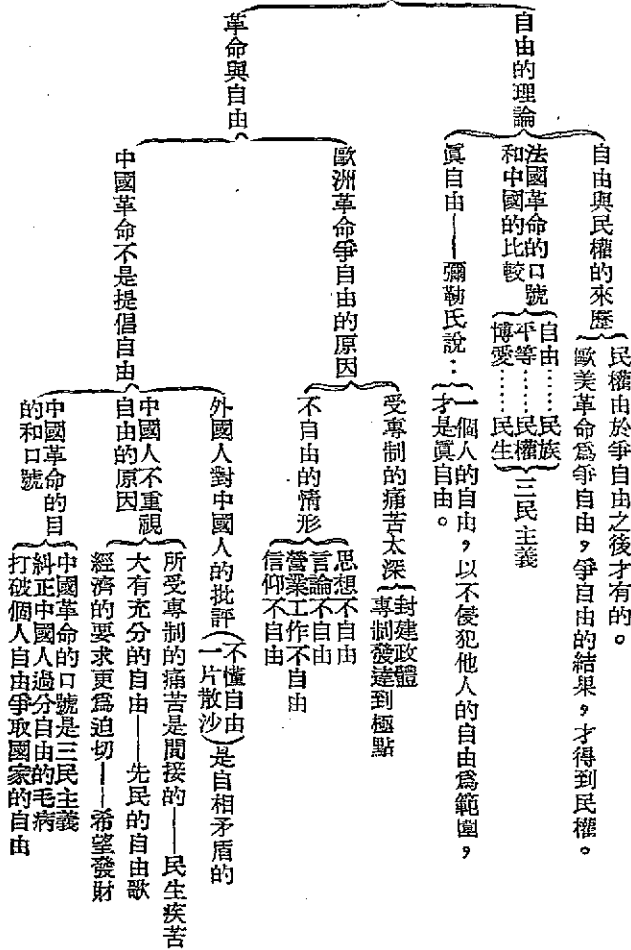 自由的理論
自由與民權的來歷
民權由於爭自由之後才有的。
歐美革命爲爭自由,爭自由的結果,才得到民權。
法國革命的口號
和中國的比較
自由……民族
平等……民權
博愛……民生
三民主義
眞自由——彌勒氏說:
一個人的自由,以不侵犯他人的自由爲範圍,
才是眞自由。
革命與自由
歐洲革命爭自由的原因
受專制的痛苦太深
封建政體
專制發達到極點
不自由的情形
思想不自由
言論不自由
營業工作不自由
信仰不自由
中國革命不是提倡自由
外國人對中國人的批評
不懂自由
一片散沙
是自相矛盾的
中國人不重視
自由的原因
所受專制的痛苦是間接的——民生疾苦
大有充分的自由——先民的自由歌
經濟的要求更爲迫切——希望發財
中國革命的目
的和口號
中國革命的口號是三民主義
糾正中國人過分自由的毛病
打破個人自由爭取國家的自由